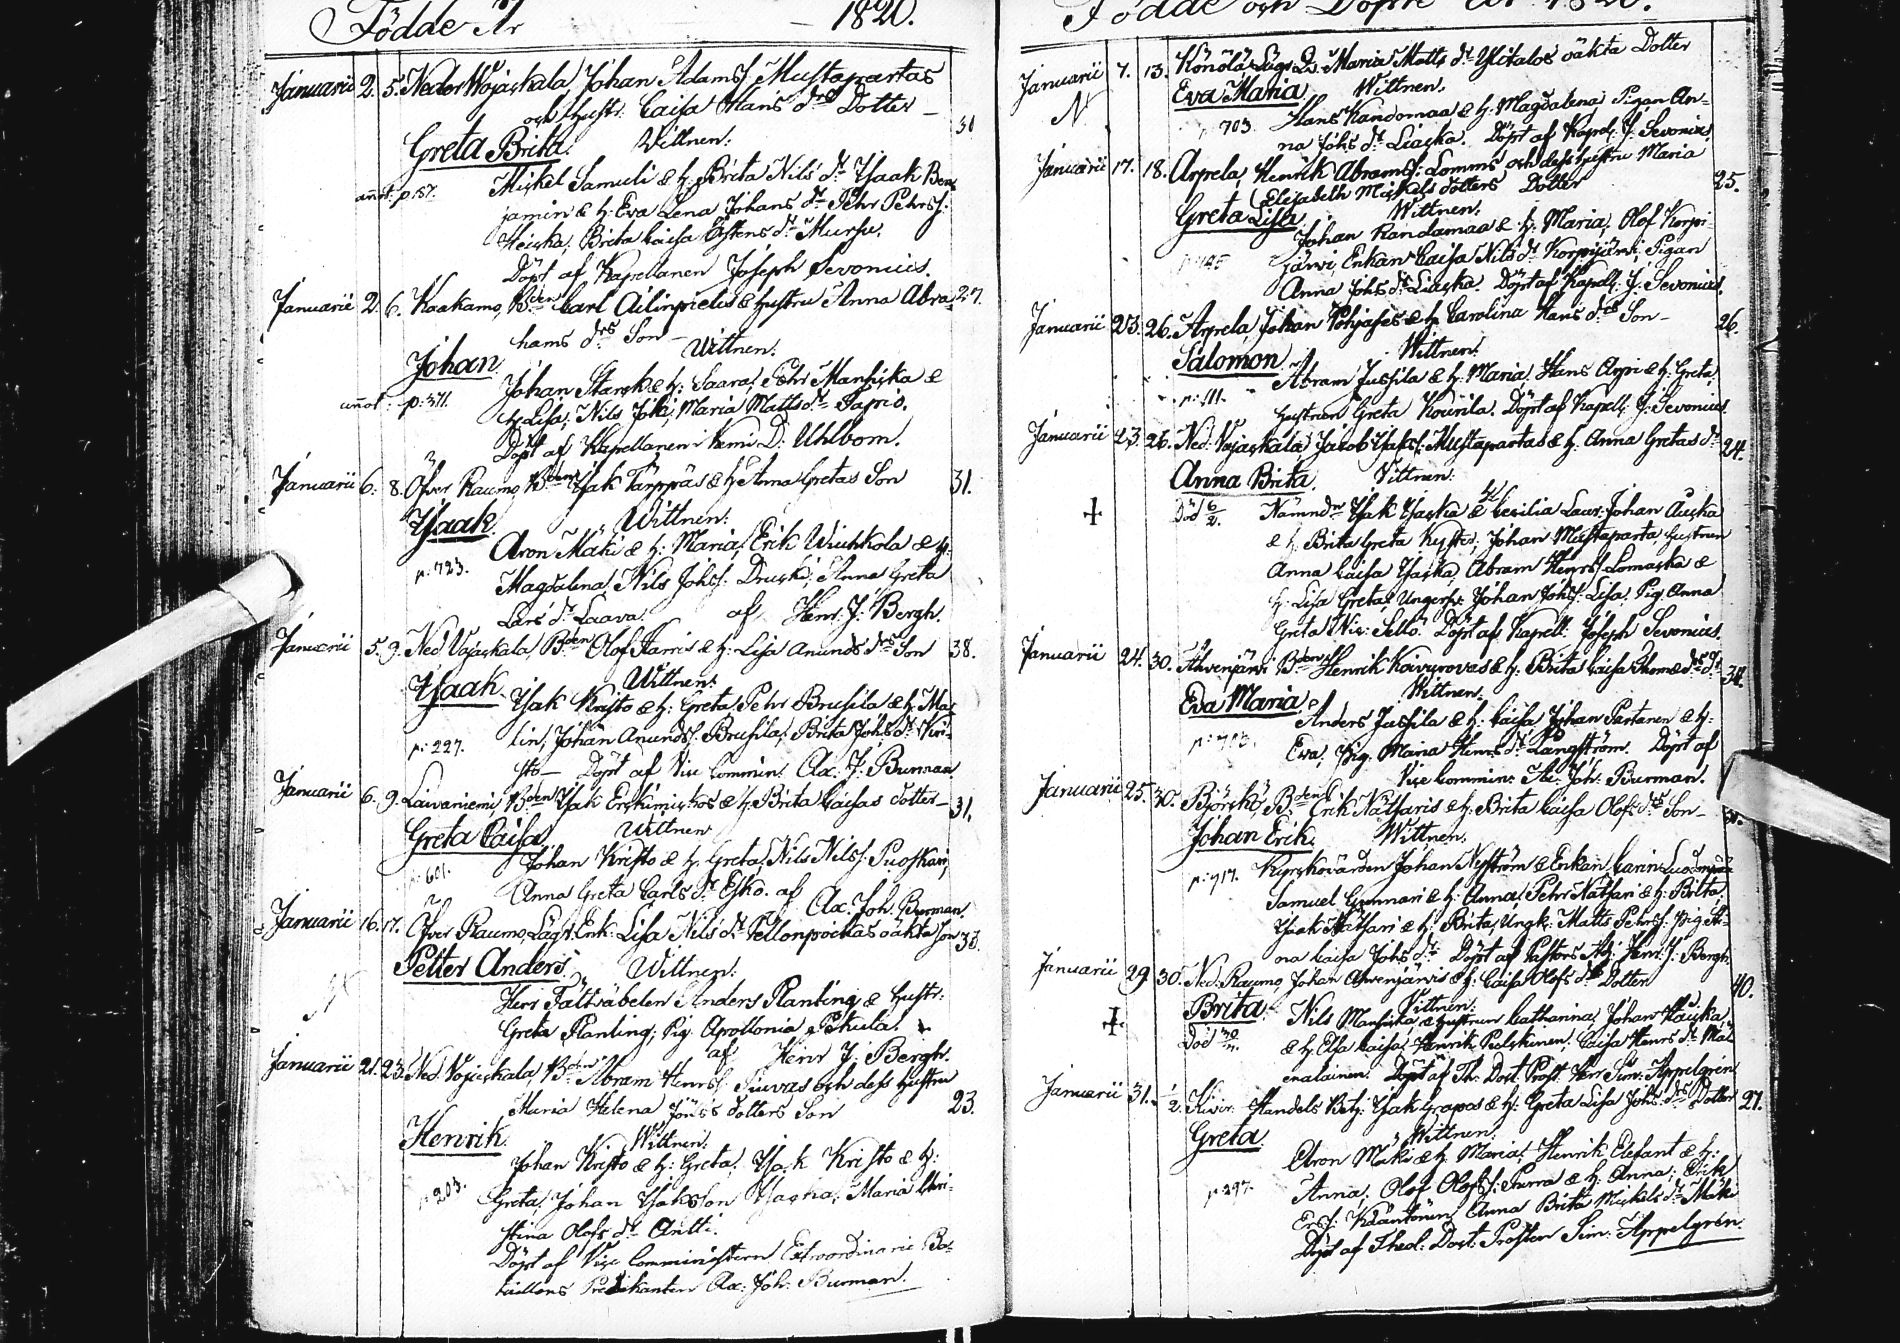 Födde År 1820.
Januarii 2. 5. Nedor Wojackala, Johan Adamss. Mustapartas
och Hustr. Caisa Hans drs Dotter — 31
Greta Brita. Wittnen:
Mickel Samuli & h. Brita Nils dr Ysaak Ben-
annot. p.57.
jamin & h: Eva Lena Johans dr Pehr Pehrs.
Heicka, Brita Caisa Östens dr Mursu.
Döpt af Kapellanen Joseph Sevonius.
Januarii 2. 6. Kaakamo, Bden Carl Ailinpieti & hustru Anna Abra- 27.
hams drs Son
Johan Wittnen:
Johan Starck & h: Saara, Pehr &
annot: p:311.
h Lisa, Nils Joki, Maria Matts dr Papio.
Döpt af Kapellanen i Kemi D: Uhlbom.
Januarii 6. 8. Öfver Raumo, Bden Ysak Tärppäs & h Anna Gretas Son 31.
Ysaak Wittnen:
Aron Mäki & h: Maria, Erik Wiuhkola & h:
p:723.
Magdalena, Nils Johss. Anna Greta
Lars dr Laava. af Henr. J. Bergh.
Januarii 5. 9. Ned Vojackala, Bden Olof Harris & h: Lisa Anunds drs Son 38.
Ysaak. Wittnen:
Ysak Kristo & h: Greta, Pehr Brusila & h: Ma-
p:227.
lin, Johan Anundss. Brusila, Brita Johs dr Kri-
sto — Döpt af Vice Commin. Ax. J: Burman
Januarii 6. 9. Laivaniemi, Bden Ysak & h. Brita Caisas dotter — 31.
Greta Caisa Wittnen
Johan Kristo & h. Greta, Nils Nilss. Puoskari,
p:601.
Anna Greta Carls dr Esko. af Ax. Joh. Burman.
Januarii 16. 17. Öfver Raumo, Lägr. Enk: Lisa Nils dr oäkta Son 33.
Petter Anders. Wittnen:
N
Herr Fältväbelen Anders Planting & Hustr:
Greta Planting; Pig. Apollonia Pekula.
af Henr J: Bergh.
Januarii 21. 23. Ned Vojackala, Bden Abram Henrss. och dess hustru
Maria Helena Jöns dotters Son 23.
Henrik. Wittnen:
Johan Kristo & h: Greta, Ysak Kristo & h:
p.203.
Greta, Johan Ysaksson Ysacka, Maria Chri-
stina Olofs dr Antti.
Döpt af Vice Comministern Extraordinarie Ba-
taillons Predikanten Ax: Joh: Burman.
Födde och Döpte År 1820.
Januarii 7. 13. Könölä, Lägr. Maria Matts dr Ylitalos oäkta Dotter
Eva Maria Wittnen.
N
p 703. Hans Kandomaa & h. Magdalena Pigan An-
na Johs dr Liacka. Döpt af Kapell. J. Sevonius.
Januarii 17. 18. Arpela, Henrik Abramss. Lomms och dess hustru Maria
Elisabeth Mickels dotters Dotter 25.
Greta Lisa Wittnen:
Johan Kandamaa & h: Maria, Olof Korpi-
järvi, Enkan Caisa Nils dr Korpijärvi, Pigan
Anna Johs dr Liacka. Döpt af Kapell. J. Sevonius.
Januarii 23. 26. Arpela, Johan & h Carolina Hans drs Son — 26.
Salomon. Wittnen:
Abram Jussila & h: Maria, Hans Arpi & h: Greta,
p:111.
hustrun Greta Kourila. Döpt af Kapell. J. Sevonius.
Januarii 23. 26. Ned. Vojackala, Jacob Ysakss. Mustapartas & h. Anna Gretas dr 24.
Anna Brita. Wittnen:
Död 6/2. Nämndn Ysak Ysacka & Cecilia Laur: Johan Aucka
& h. Brita Greta Johan Mustaparta hustrun
Anna Caisa Ysacka, Abram Henrss. Lomacka &
h: Lisa Greta, Ungers. Johan Johss. Lisa, Pig. Anna
Greta Döpt af Kapell. Joseph Sevonius.
Januarii 24. 30. Ahvenjärvi, Bden Henrik Kaivurovas & h. Brita Caisa Thomæ drs dr 34.
Eva Maria Wittnen:
Anders Jussila & h: Caisa, Johan Partanen & h:
p:703.
Eva, Pig. Maria Henrs dr Långström. Döpt af
Vice Commin: Joh. Burman.
Januarii 25. 30. Björckö, Bden Erik Nathars & h: Brita Caisa Olofs drs Son —
Johan Erik. Wittnen:
p:917. Kyrckovärden Johan Nyström & Enkan Carin
Samuel Gunnari & h: Anna, Pehr Nathari & h: Brita,
Ysaak Nathari & h: Brita, Ungk: Matts Pehrss. Pig An-
na Caisa Johs dr Döpt af Pastors Adj. Henr. J. Bergh.
Januarii 29. 30. Ned. Raumo, Johan Ahvenjärvis & h: Caisa Olofs drs Dotter 40.
Brita. Wittnen:
Nils & hustrun Catharina, Johan Haucka
Död
& h. Elsa Caisa, Henrik Palokinen, Caisa Henrs dr Mä-
enalainen. Döpt af Th: Doct. Prost. Herr Sim: Appelgrén
Januarii 31. 1/2. Kivir. Handels Betj: Ysak Grapes & h: Greta Lisa Johs drs Dotter 27.
Greta. Wittnen:
Aron Mäki & h: Maria, Henrik Elefant & h:
p.297.
Anna, Olof Olofss: & h. Anna, Erik
Erss: Kääntönen, Anna Brita Mickels dr Mäki
Döpt af Theol: Doct: Prosten Sim: Appelgrén.